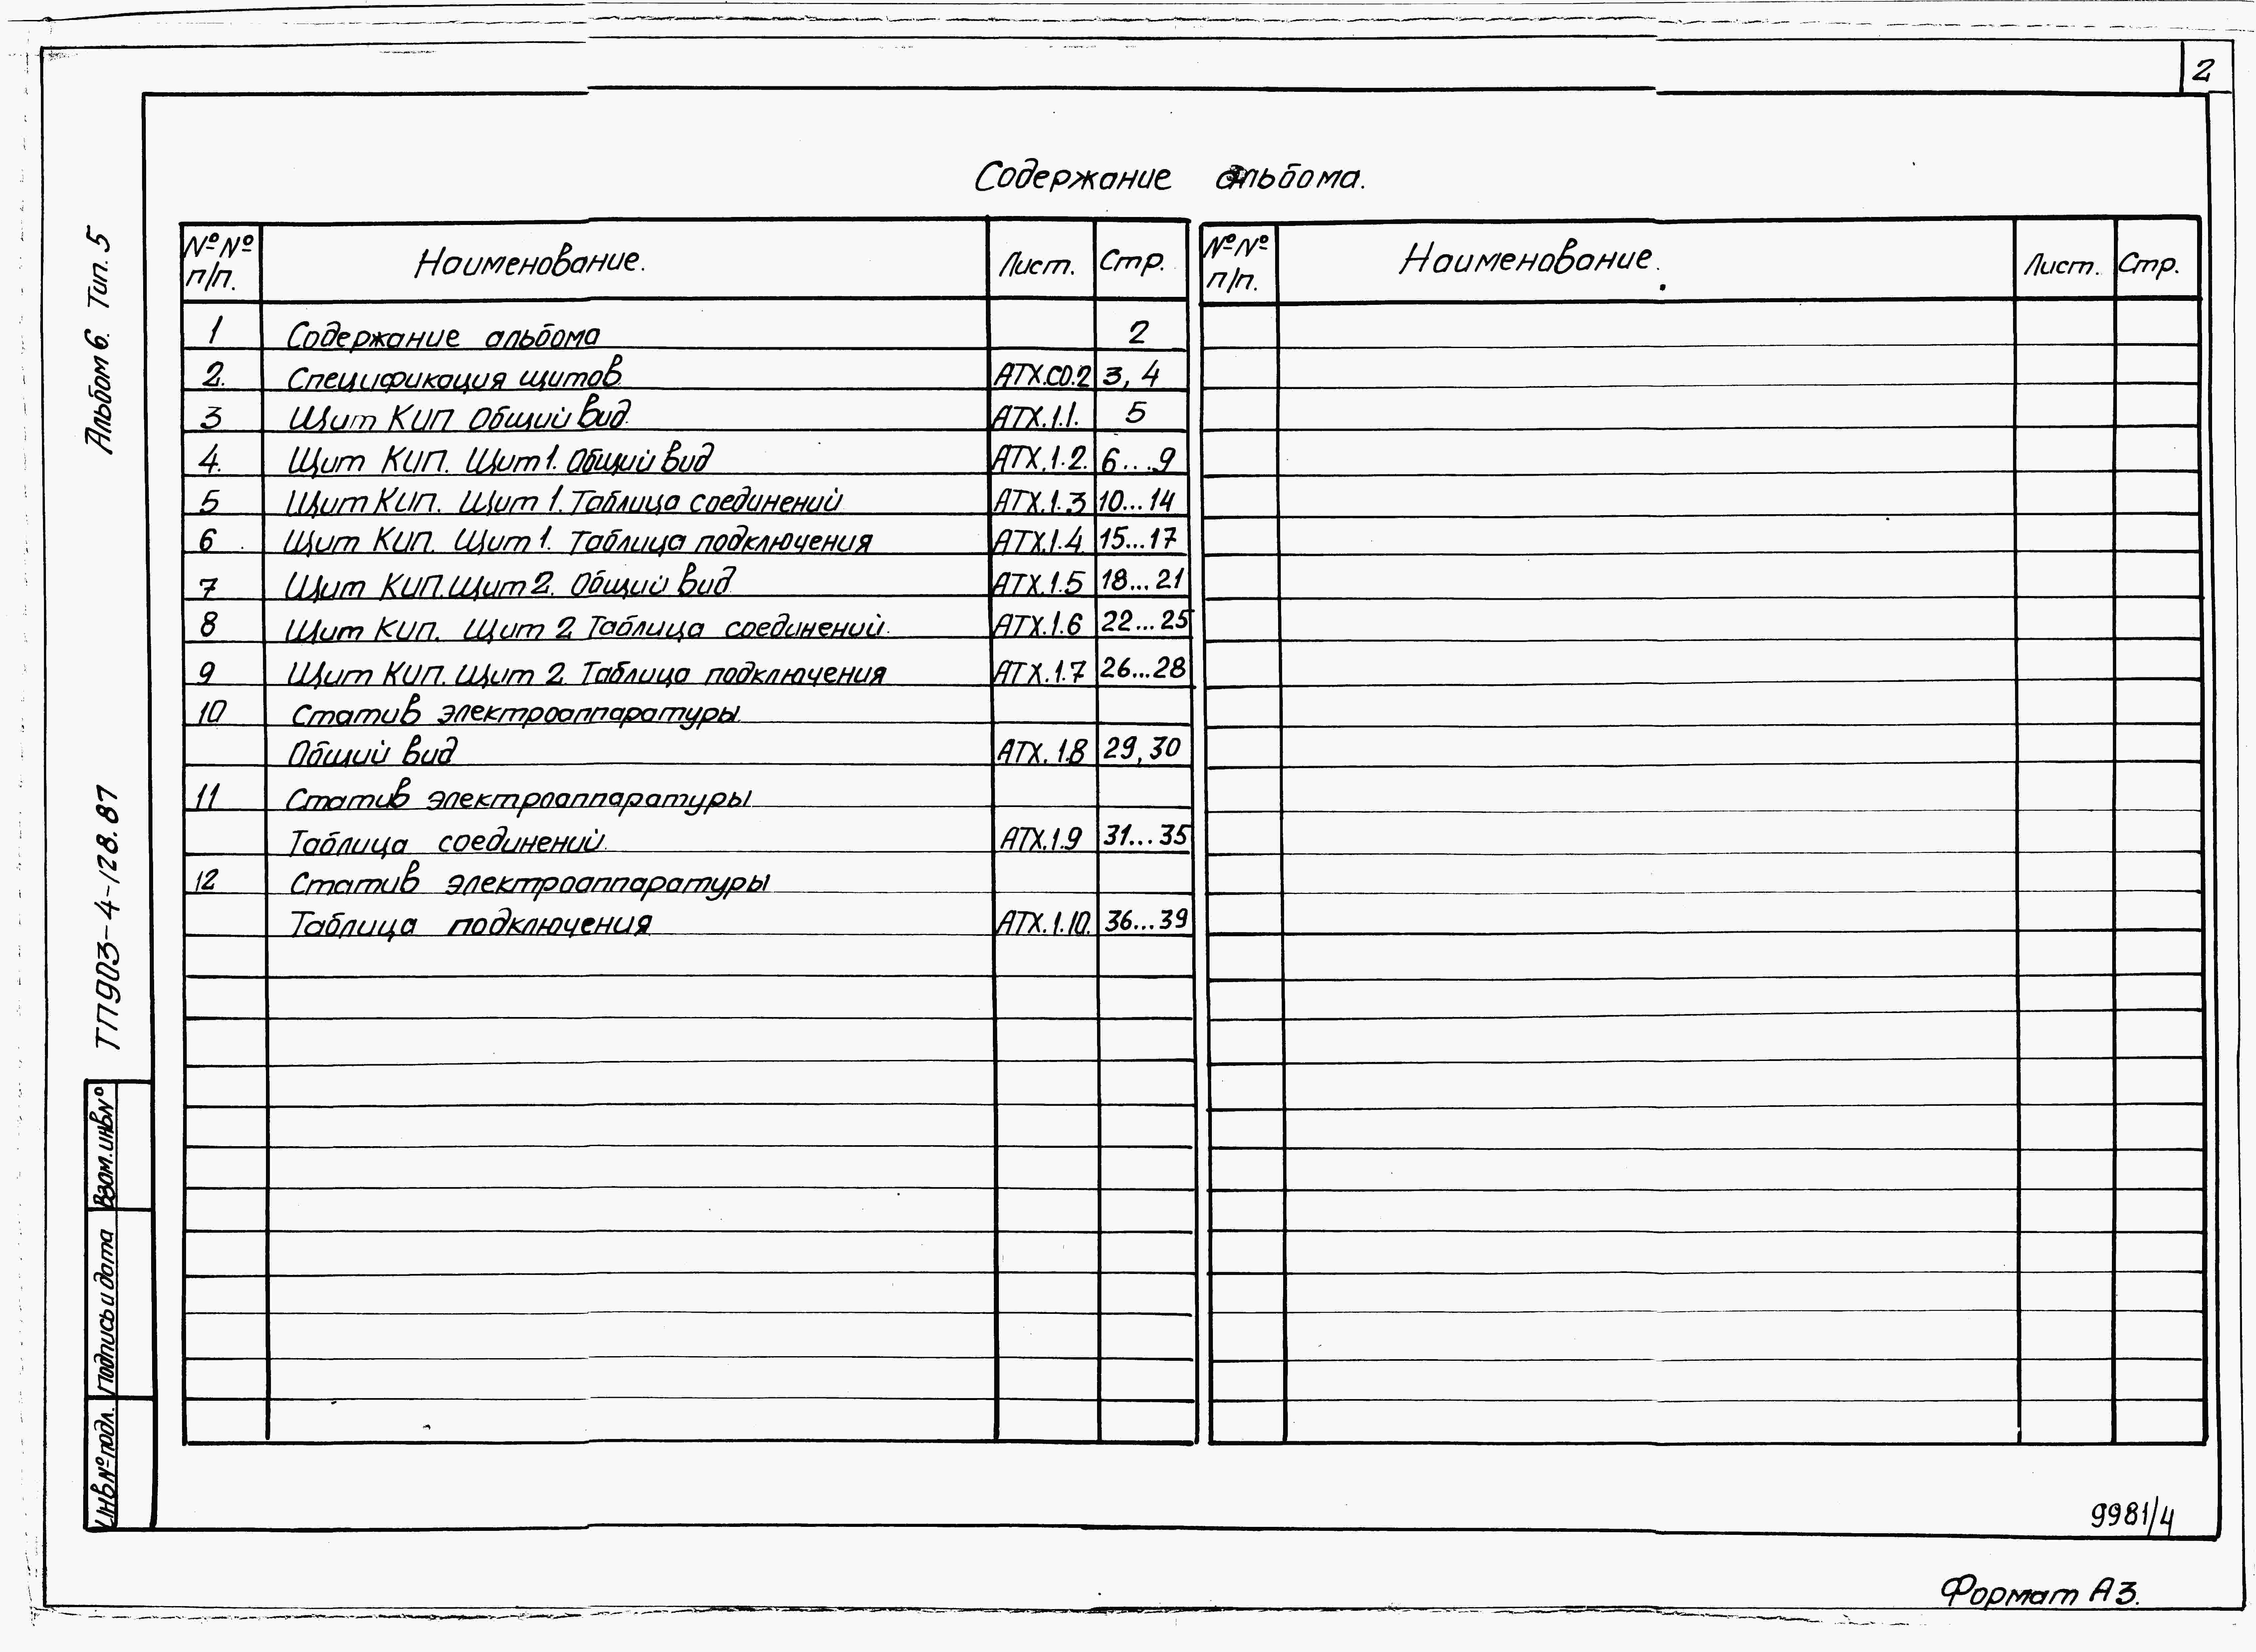 2
Содержание альбома.
№№ п/п. Наименование. Лист. Стр.
1 Содержание альбома 2
2. Спецификация щитов АТХ.СО.2 3, 4
3 Щит КИП Общий вид. АТХ.1.1. 5
4. Щит КИП. Щит 1. Общий вид АТХ.1.2. 6...9
5 Щит КИП. Щит 1. Таблица соединений АТХ.1.3 10...14
6 Щит КИП. Щит 1. Таблица подключения АТХ.1.4. 15...17
7 Щит КИП. Щит 2. Общий вид. АТХ.1.5 18...21
8 Щит КИП. Щит 2. Таблица соединений. АТХ.1.6 22...25
9 Щит КИП. Щит 2. Таблица подключения АТХ.1.7 26...28
10 Статив электроаппаратуры.
Общий вид АТХ.1.8 29, 30
11 Статив электроаппаратуры
Таблица соединений. АТХ.1.9 31...35
12 Статив электроаппаратуры
Таблица подключения АТХ.1.10. 36...39
№№ п/п. Наименование. Лист. Стр.
Альбом 6. Тип. 5
ТП903-4-128.87
Взам.инв№
Подпись и дата
Инв№подл.
9981/4
Формат А3.